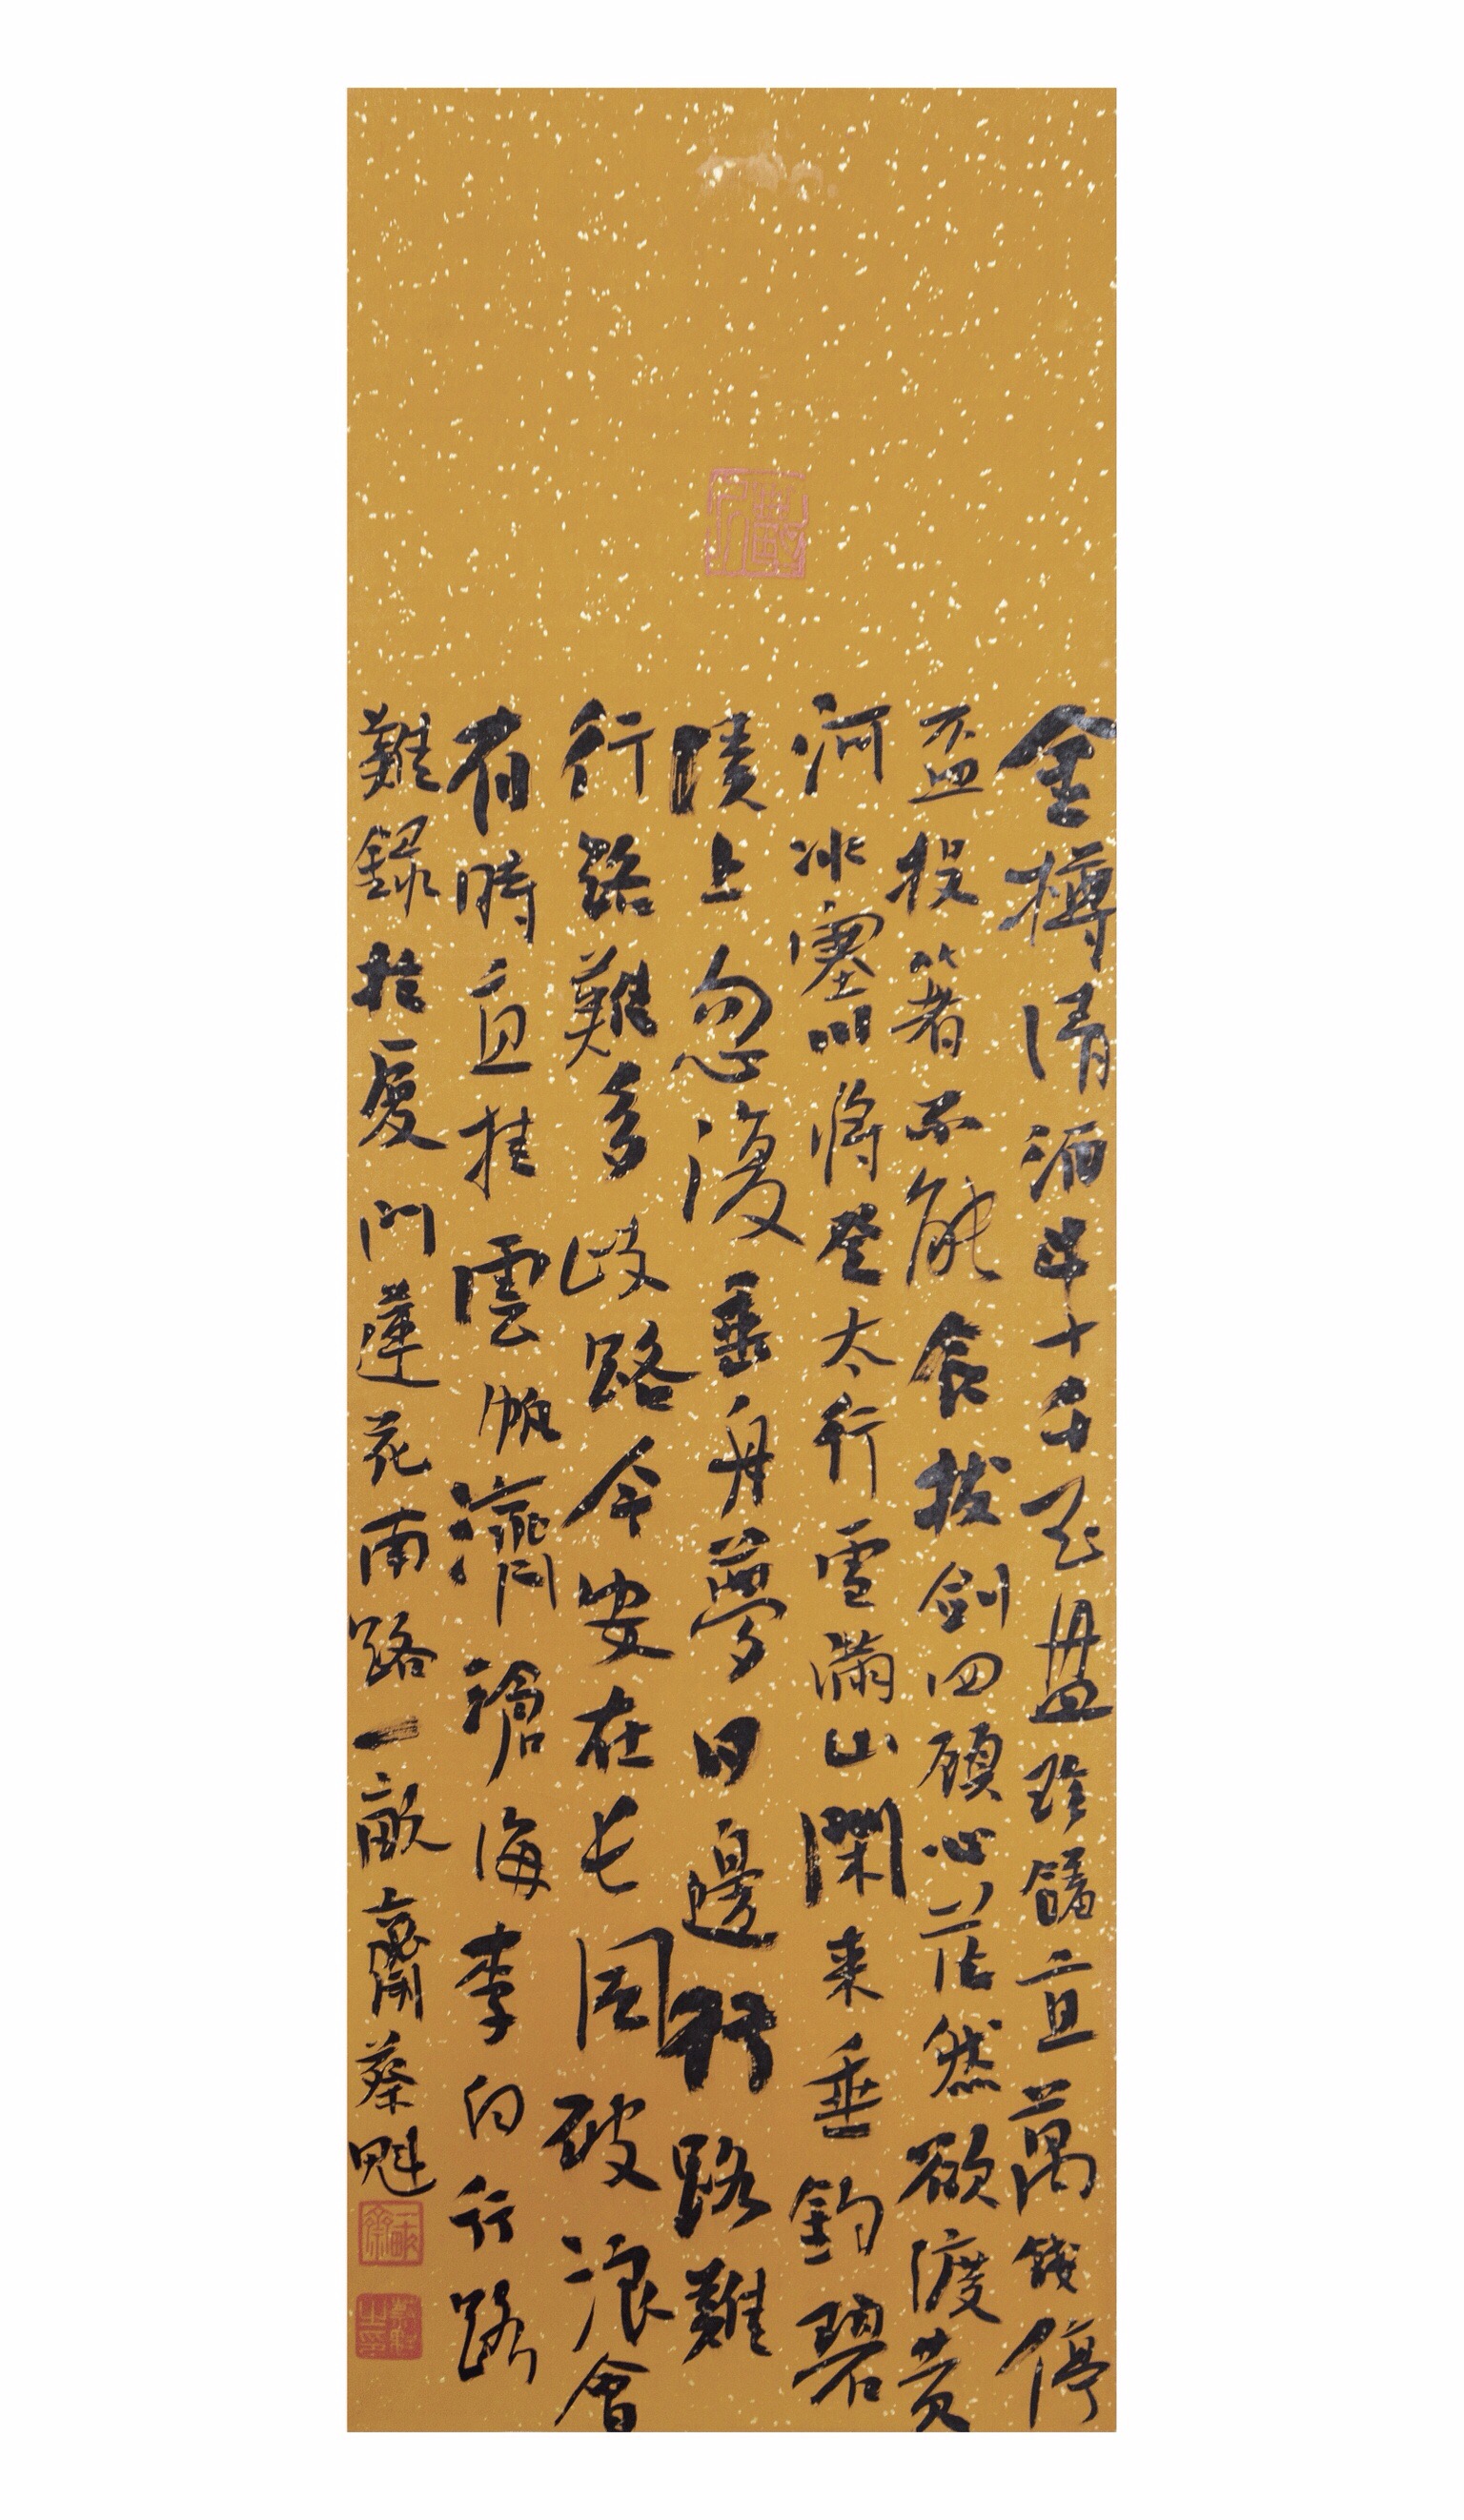 金樽清酒斗十千玉盤珍饈直萬錢停
盃投箸不能食拔劍四顧心茫然欲渡黄
河冰塞川將登太行雪滿山閑来垂釣碧
溪上忽復乘舟夢日邊行路難
行路難多歧路今安在長風破浪會
有時直挂雲帆濟滄海李白行路
難録於廈門蓮花南路一畝齋蔡魁
一畝齋
蔡魁之印